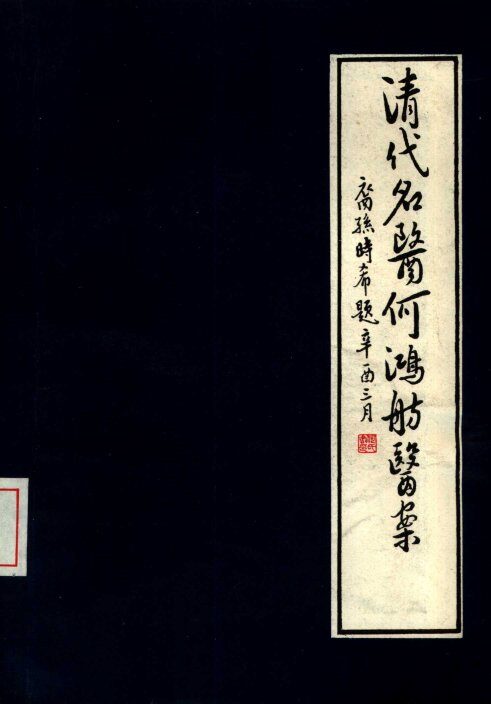 清代名醫何鴻舫醫案
裔孫時希題辛酉三月